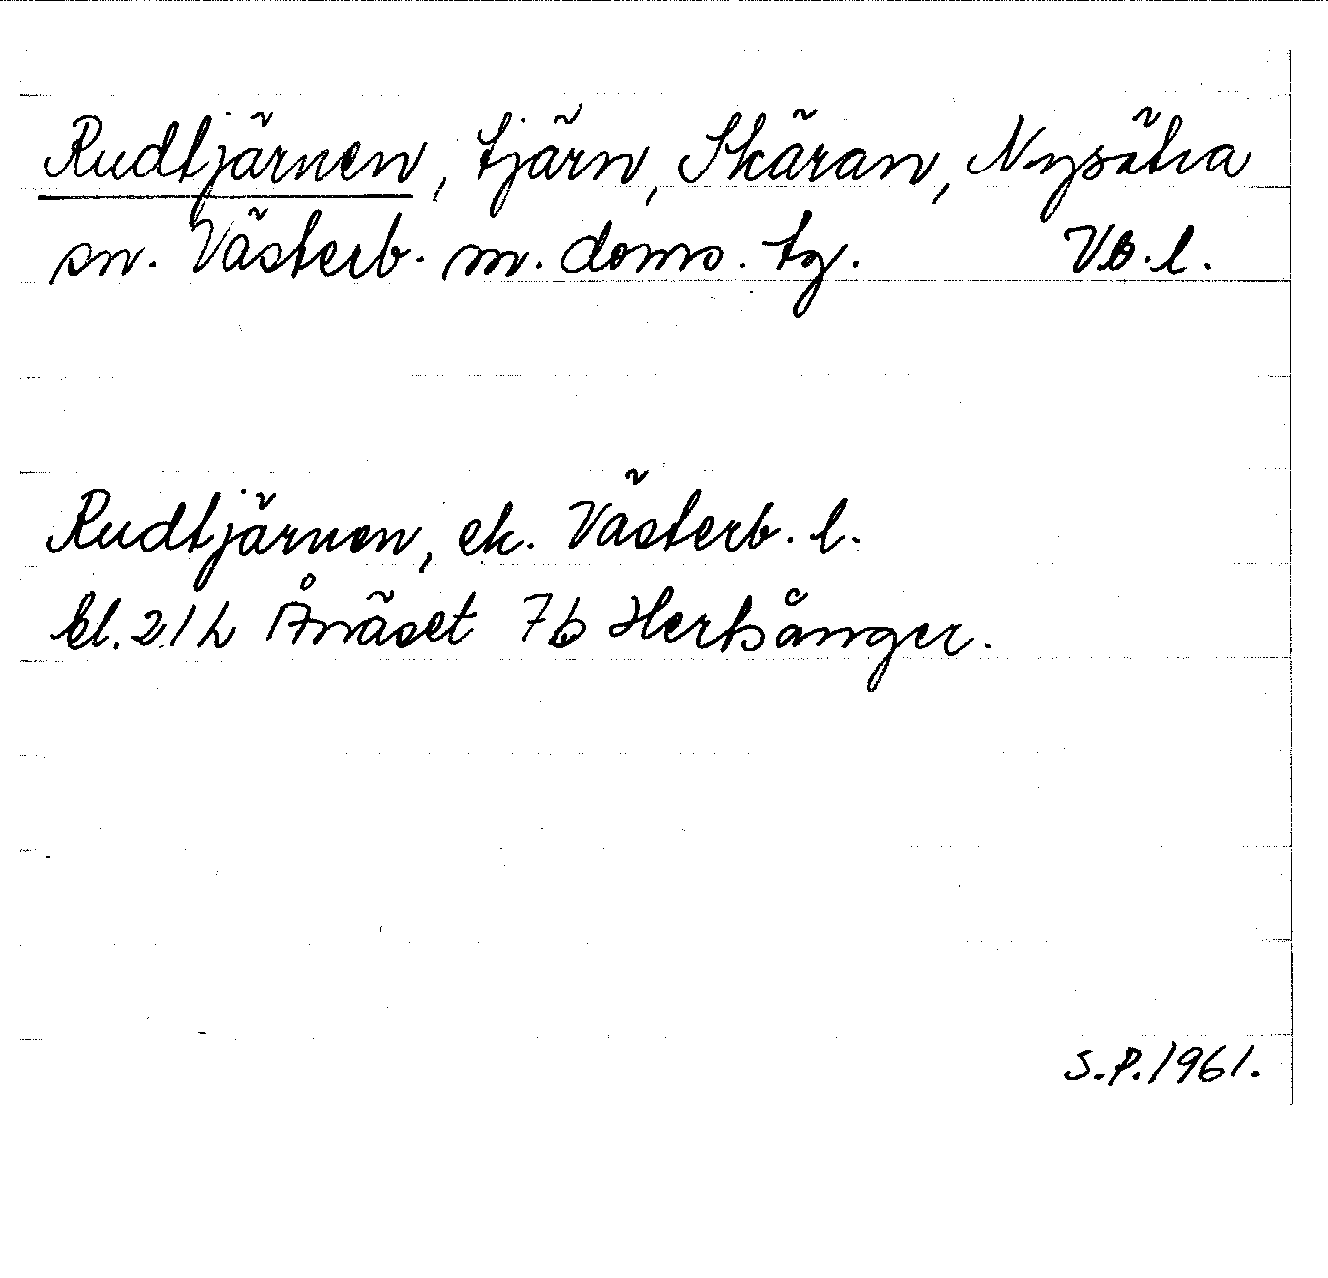 Rudtjärnen, tjärn, Skäran, Nysätra
sn. Västerb. m. doms. tg. Vb. l.
Rudtjärnen, ek. Västerb. l.
bl. 21 L Ånäset 7b Hertsånger.
S.P. 1961.